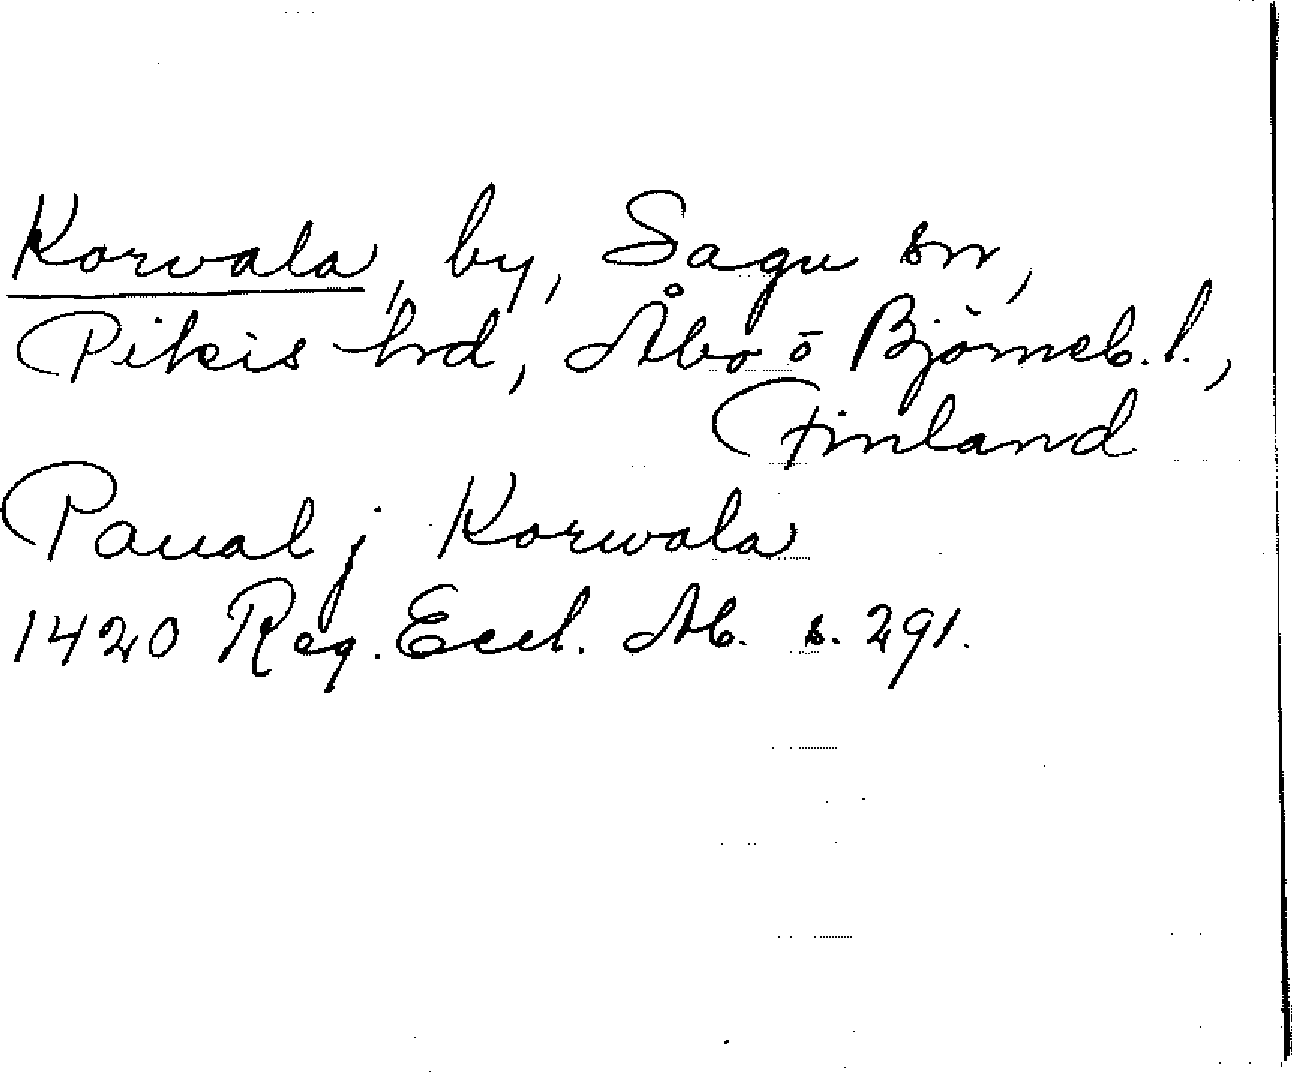 Korvala, by, Sagu sn,
Pikis hrd, Åbo o Björneb. l.,
Finland
Paual j Korwala
1420 Reg. Eccl. Ab. s. 291.